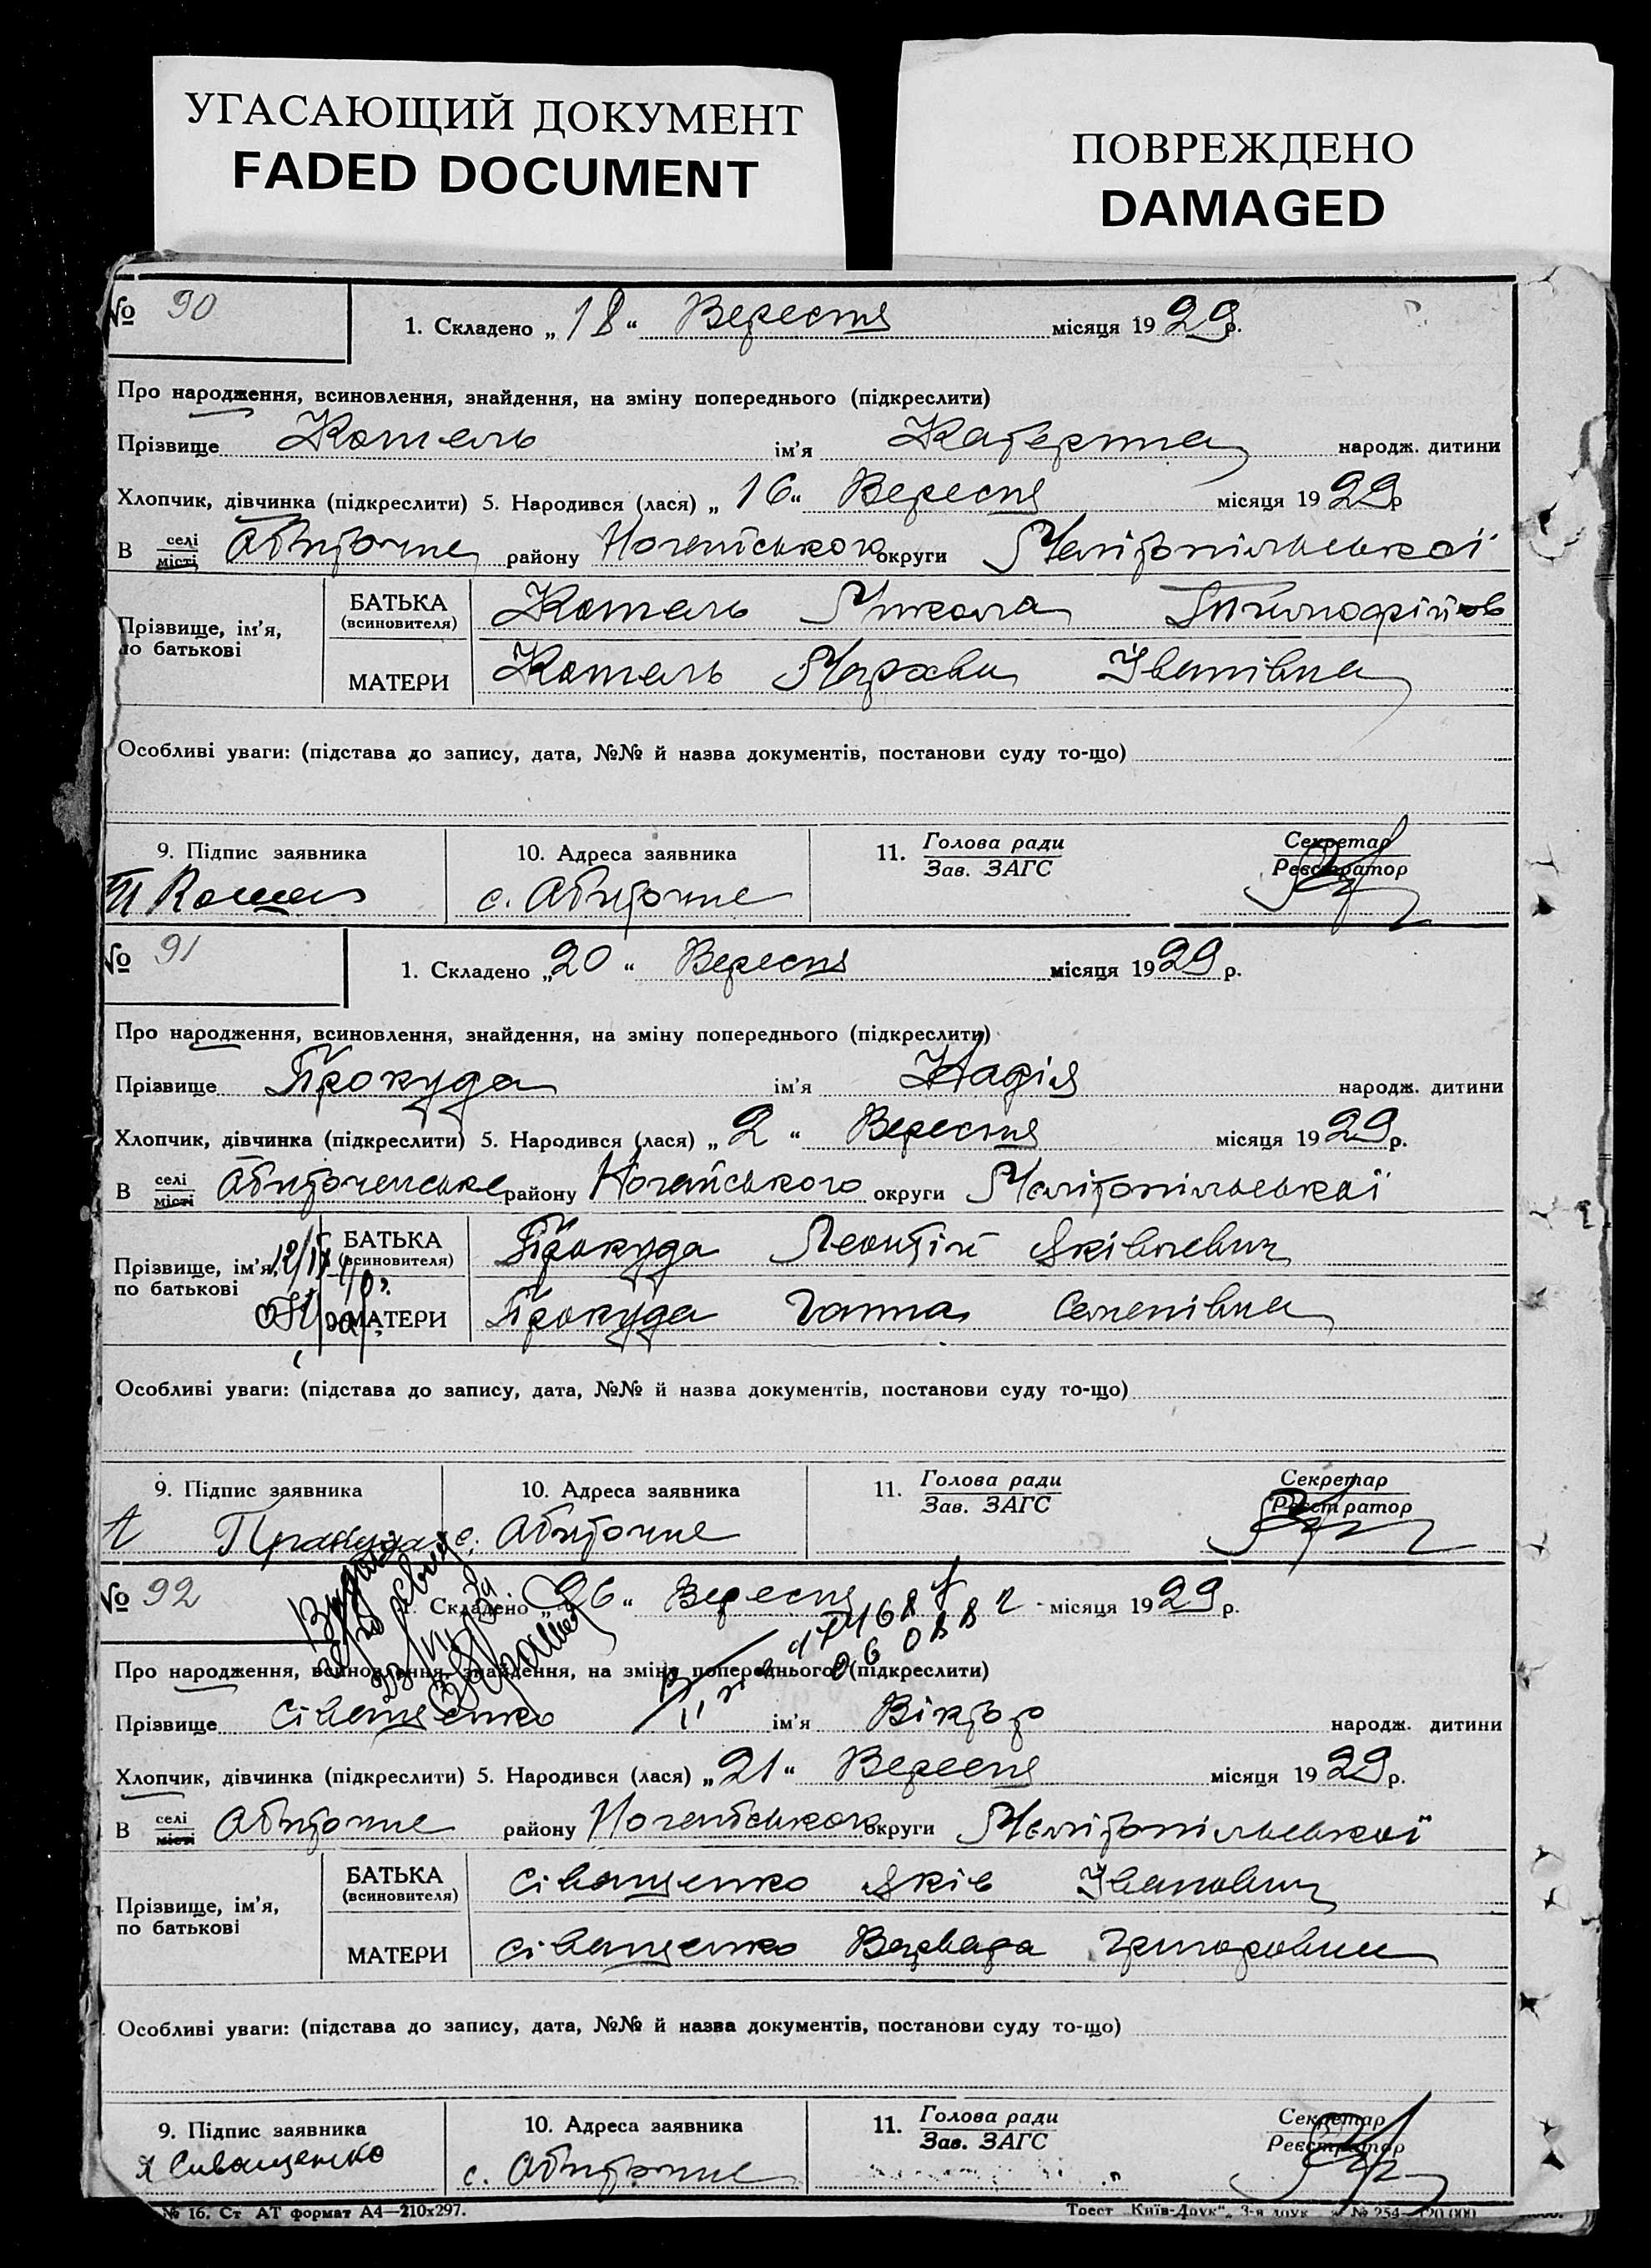 УГАСАЮЩИЙ ДОКУМЕНТ
FADED DOCUMENT
ПОВРЕЖДЕНО
DAMAGED
№ 90
1. Складено „18“ Вересня місяця 1929 р.
Про народження, всиновлення, знайдення, на зміну попереднього (підкреслити)
Прізвище Котель ім'я Катерина народж. дитини
Хлопчик, дівчинка (підкреслити) 5. Народився (лася) „16“ Вересня місяця 1929 р
В селі місті Обиточне району Ногайського округи Мелітопільської
Прізвище, ім'я, по батькові
БАТЬКА (всиновителя) Котель Микола
МАТЕРИ Котель Марфа Іванівна
Особливі уваги: (підстава до запису, дата, №№ й назва документів, постанови суду то-що)
9. Підпис заявника
10. Адреса заявника
11. Голова ради Зав. ЗАГС
Секретар Реєстратор
с. Обиточне
№ 91
1. Складено „20“ Вересня місяця 1929 р.
Про народження, всиновлення, знайдення, на зміну попереднього (підкреслити)
Прізвище Прокуда ім'я Надія народж. дитини
Хлопчик, дівчинка (підкреслити) 5. Народився (лася) „2“ Вересня місяця 1929 р.
В селі місті Обиточенське району Ногайського округи Мелітопільської
Прізвище, ім'я, по батькові
БАТЬКА (всиновителя) Прокуда Леонтій Яківлевич
МАТЕРИ Прокуда Ганна Семенівна
Особливі уваги: (підстава до запису, дата, №№ й назва документів, постанови суду то-що)
9. Підпис заявника
10. Адреса заявника
11. Голова ради Зав. ЗАГС
Секретар Реєстратор
Прокуда
с. Обиточне
№ 92
1. Складено „26“ Вересня місяця 1929 р.
Про народження, всиновлення, знайдення, на зміну попереднього (підкреслити)
Прізвище Сіващенко ім'я Віктор народж. дитини
Хлопчик, дівчинка (підкреслити) 5. Народився (лася) „21“ Вересня місяця 1929 р.
В селі місті Обиточне району Ногайського округи Мелітопільської
Прізвище, ім'я, по батькові
БАТЬКА (всиновителя) Сіващенко Яків Іванович
МАТЕРИ Сіващенко Варвара
Особливі уваги: (підстава до запису, дата, №№ й назва документів, постанови суду то-що)
9. Підпис заявника
10. Адреса заявника
11. Голова ради Зав. ЗАГС
Секретар Реєстратор
Я Сиващенко
с. Обиточне
№ 16. Ст АТ формат А4—210х297.
Трест „Київ-Друк“, 3-я друк № 254